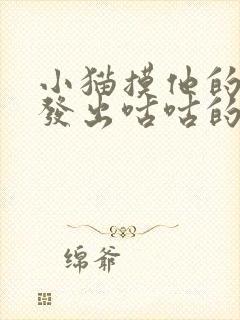 小猫摸他的
發出咕咕的
绵爷